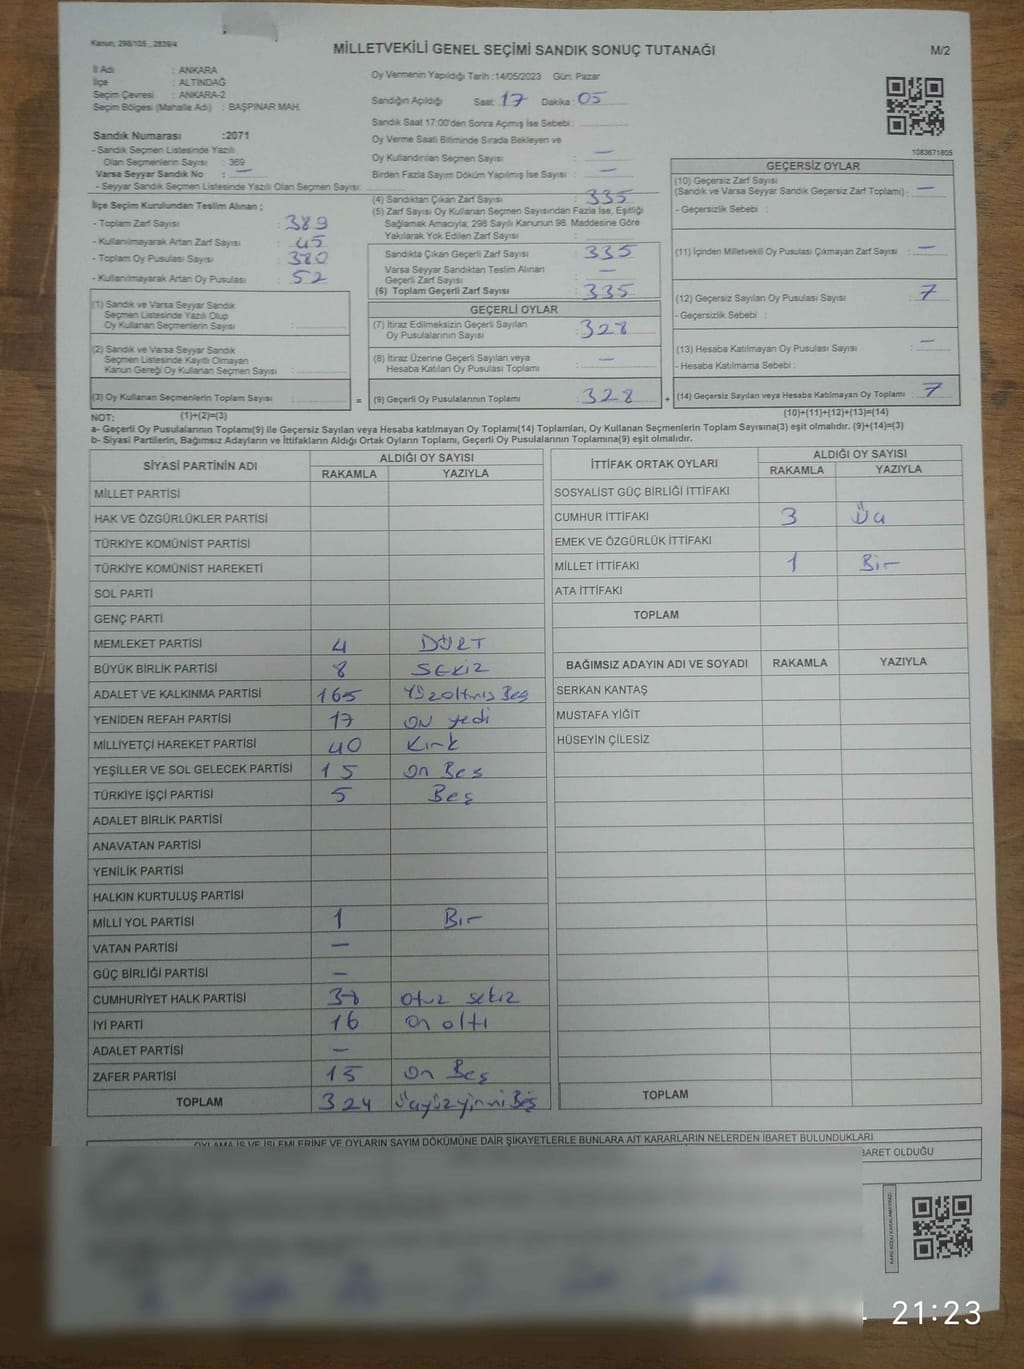 Kanun; 298/105 , 2839/4
MİLLETVEKİLİ GENEL SEÇİMİ SANDIK SONUÇ TUTANAĞI
M/2
İl Adı : ANKARA
İlçe : ALTINDAĞ
Seçim Çevresi : ANKARA-2
Seçim Bölgesi (Mahalle Adı) : BAŞPINAR MAH.
Oy Vermenin Yapıldığı Tarih :14/05/2023 Gün: Pazar
Sandığın Açıldığı Saat: 17 Dakika: 05
Sandık Saat 17:00'den Sonra Açımış İse Sebebi:
Oy Verme Saati Bitiminde Sırada Bekleyen ve
Oy Kullandırılan Seçmen Sayısı : —
Birden Fazla Sayım Döküm Yapılmış İse Sayısı : —
1083671805
Sandık Numarası :2071
- Sandık Seçmen Listesinde Yazılı
Olan Seçmenlerin Sayısı : 369
Varsa Seyyar Sandık No : —
- Seyyar Sandık Seçmen Listesinde Yazılı Olan Seçmen Sayısı:
İlçe Seçim Kurulundan Teslim Alınan ;
- Toplam Zarf Sayısı : 389
- Kullanılmayarak Artan Zarf Sayısı : 45
- Toplam Oy Pusulası Sayısı : 380
- Kullanılmayarak Artan Oy Pusulası : 52
(1) Sandık ve Varsa Seyyar Sandık
Seçmen Listesinde Yazılı Olup
Oy Kullanan Seçmenlerin Sayısı :
(2) Sandık ve Varsa Seyyar Sandık
Seçmen Listesinde Kayıtlı Olmayan
Kanun Gereği Oy Kullanan Seçmen Sayısı :
(3) Oy Kullanan Seçmenlerin Toplam Sayısı :
(4) Sandıktan Çıkan Zarf Sayısı : 335
(5) Zarf Sayısı Oy Kullanan Seçmen Sayısından Fazla İse, Eşitliği
Sağlamak Amacıyla, 298 Sayılı Kanunun 98. Maddesine Göre
Yakılarak Yok Edilen Zarf Sayısı :
Sandıkta Çıkan Geçerli Zarf Sayısı : 335
Varsa Seyyar Sandıktan Teslim Alınan
Geçerli Zarf Sayısı : —
(6) Toplam Geçerli Zarf Sayısı : 335
GEÇERLİ OYLAR
(7) İtiraz Edilmeksizin Geçerli Sayılan
Oy Pusulalarının Sayısı : 328
(8) İtiraz Üzerine Geçerli Sayılan veya
Hesaba Katılan Oy Pusulası Toplamı : —
= (9) Geçerli Oy Pusulalarının Toplamı : 328 +
GEÇERSİZ OYLAR
(10) Geçersiz Zarf Sayısı
(Sandık ve Varsa Seyyar Sandık Geçersiz Zarf Toplamı) : —
- Geçersizlik Sebebi :
(11) İçinden Milletvekili Oy Pusulası Çıkmayan Zarf Sayısı : —
(12) Geçersiz Sayılan Oy Pusulası Sayısı : 7
- Geçersizlik Sebebi :
(13) Hesaba Katılmayan Oy Pusulası Sayısı : —
- Hesaba Katılmama Sebebi :
(14) Geçersiz Sayılan veya Hesaba Katılmayan Oy Toplamı : 7
NOT: (1)+(2)=(3)
(10)+(11)+(12)+(13)=(14)
a- Geçerli Oy Pusulalarının Toplamı(9) ile Geçersiz Sayılan veya Hesaba katılmayan Oy Toplamı(14) Toplamları, Oy Kullanan Seçmenlerin Toplam Sayısına(3) eşit olmalıdır. (9)+(14)=(3)
b- Siyasi Partilerin, Bağımsız Adayların ve İttifakların Aldığı Ortak Oyların Toplamı, Geçerli Oy Pusulalarının Toplamına(9) eşit olmalıdır.
SİYASİ PARTİNİN ADI ALDIĞI OY SAYISI
RAKAMLA YAZIYLA
MİLLET PARTİSİ
HAK VE ÖZGÜRLÜKLER PARTİSİ
TÜRKİYE KOMÜNİST PARTİSİ
TÜRKİYE KOMÜNİST HAREKETİ
SOL PARTİ
GENÇ PARTİ
MEMLEKET PARTİSİ 4 DÖRT
BÜYÜK BİRLİK PARTİSİ 8 SEKİZ
ADALET VE KALKINMA PARTİSİ 165 Yüzaltmış Beş
YENİDEN REFAH PARTİSİ 17 on yedi
MİLLİYETÇİ HAREKET PARTİSİ 40 Kırk
YEŞİLLER VE SOL GELECEK PARTİSİ 15 on Beş
TÜRKİYE İŞÇİ PARTİSİ 5 Beş
ADALET BİRLİK PARTİSİ
ANAVATAN PARTİSİ
YENİLİK PARTİSİ
HALKIN KURTULUŞ PARTİSİ
MİLLİ YOL PARTİSİ 1 Bir
VATAN PARTİSİ —
GÜÇ BİRLİĞİ PARTİSİ —
CUMHURİYET HALK PARTİSİ 38 otuz sekiz
İYİ PARTİ 16 on altı
ADALET PARTİSİ —
ZAFER PARTİSİ 15 on Beş
TOPLAM 324
İTTİFAK ORTAK OYLARI ALDIĞI OY SAYISI
RAKAMLA YAZIYLA
SOSYALİST GÜÇ BİRLİĞİ İTTİFAKI
CUMHUR İTTİFAKI 3 Üç
EMEK VE ÖZGÜRLÜK İTTİFAKI
MİLLET İTTİFAKI 1 Bir
ATA İTTİFAKI
TOPLAM
BAĞIMSIZ ADAYIN ADI VE SOYADI RAKAMLA YAZIYLA
SERKAN KANTAŞ
MUSTAFA YİĞİT
HÜSEYİN ÇİLESİZ
TOPLAM
OYLAMA İŞ VE İŞLEMLERİNE VE OYLARIN SAYIM DÖKÜMÜNE DAİR ŞİKAYETLERLE BUNLARA AİT KARARLARIN NELERDEN İBARET BULUNDUKLARI
BARET OLDUĞU
21:23